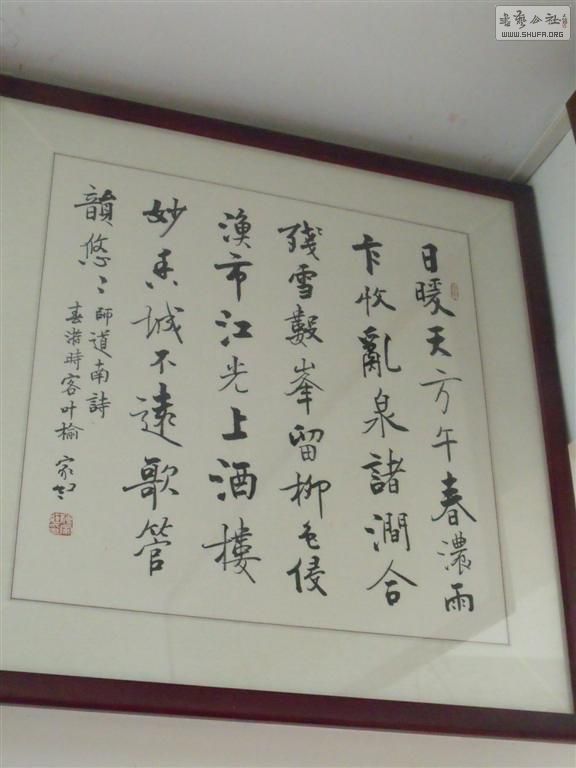 書藝公社
WWW.SHUFA.ORG
日暖天方午春濃雨
乍收亂泉諸澗合
殘雪數峯留柳色侵
漁市江光上酒樓
妙香城不遠歌管
韻悠〻
師道南詩
時客叶榆